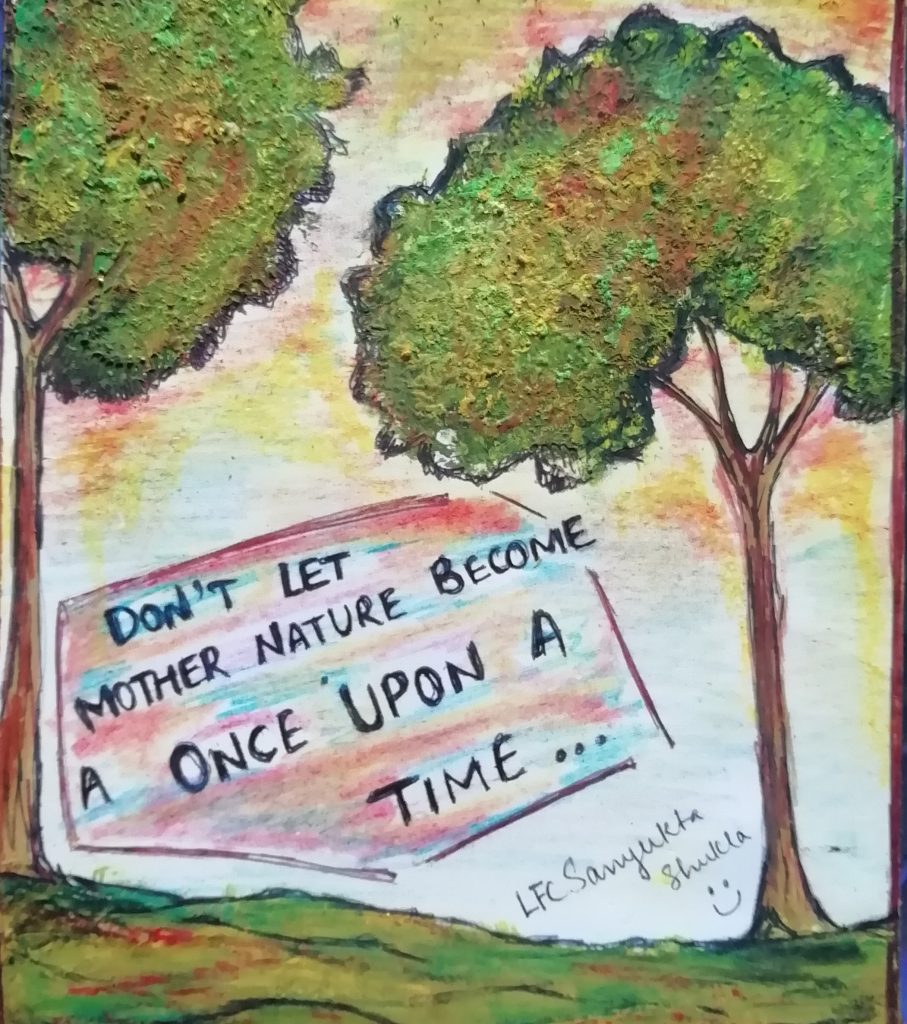 DON'T LET
MOTHER NATURE BECOME
A ONCE UPON A
TIME...
LFC Samyukta
Shukla